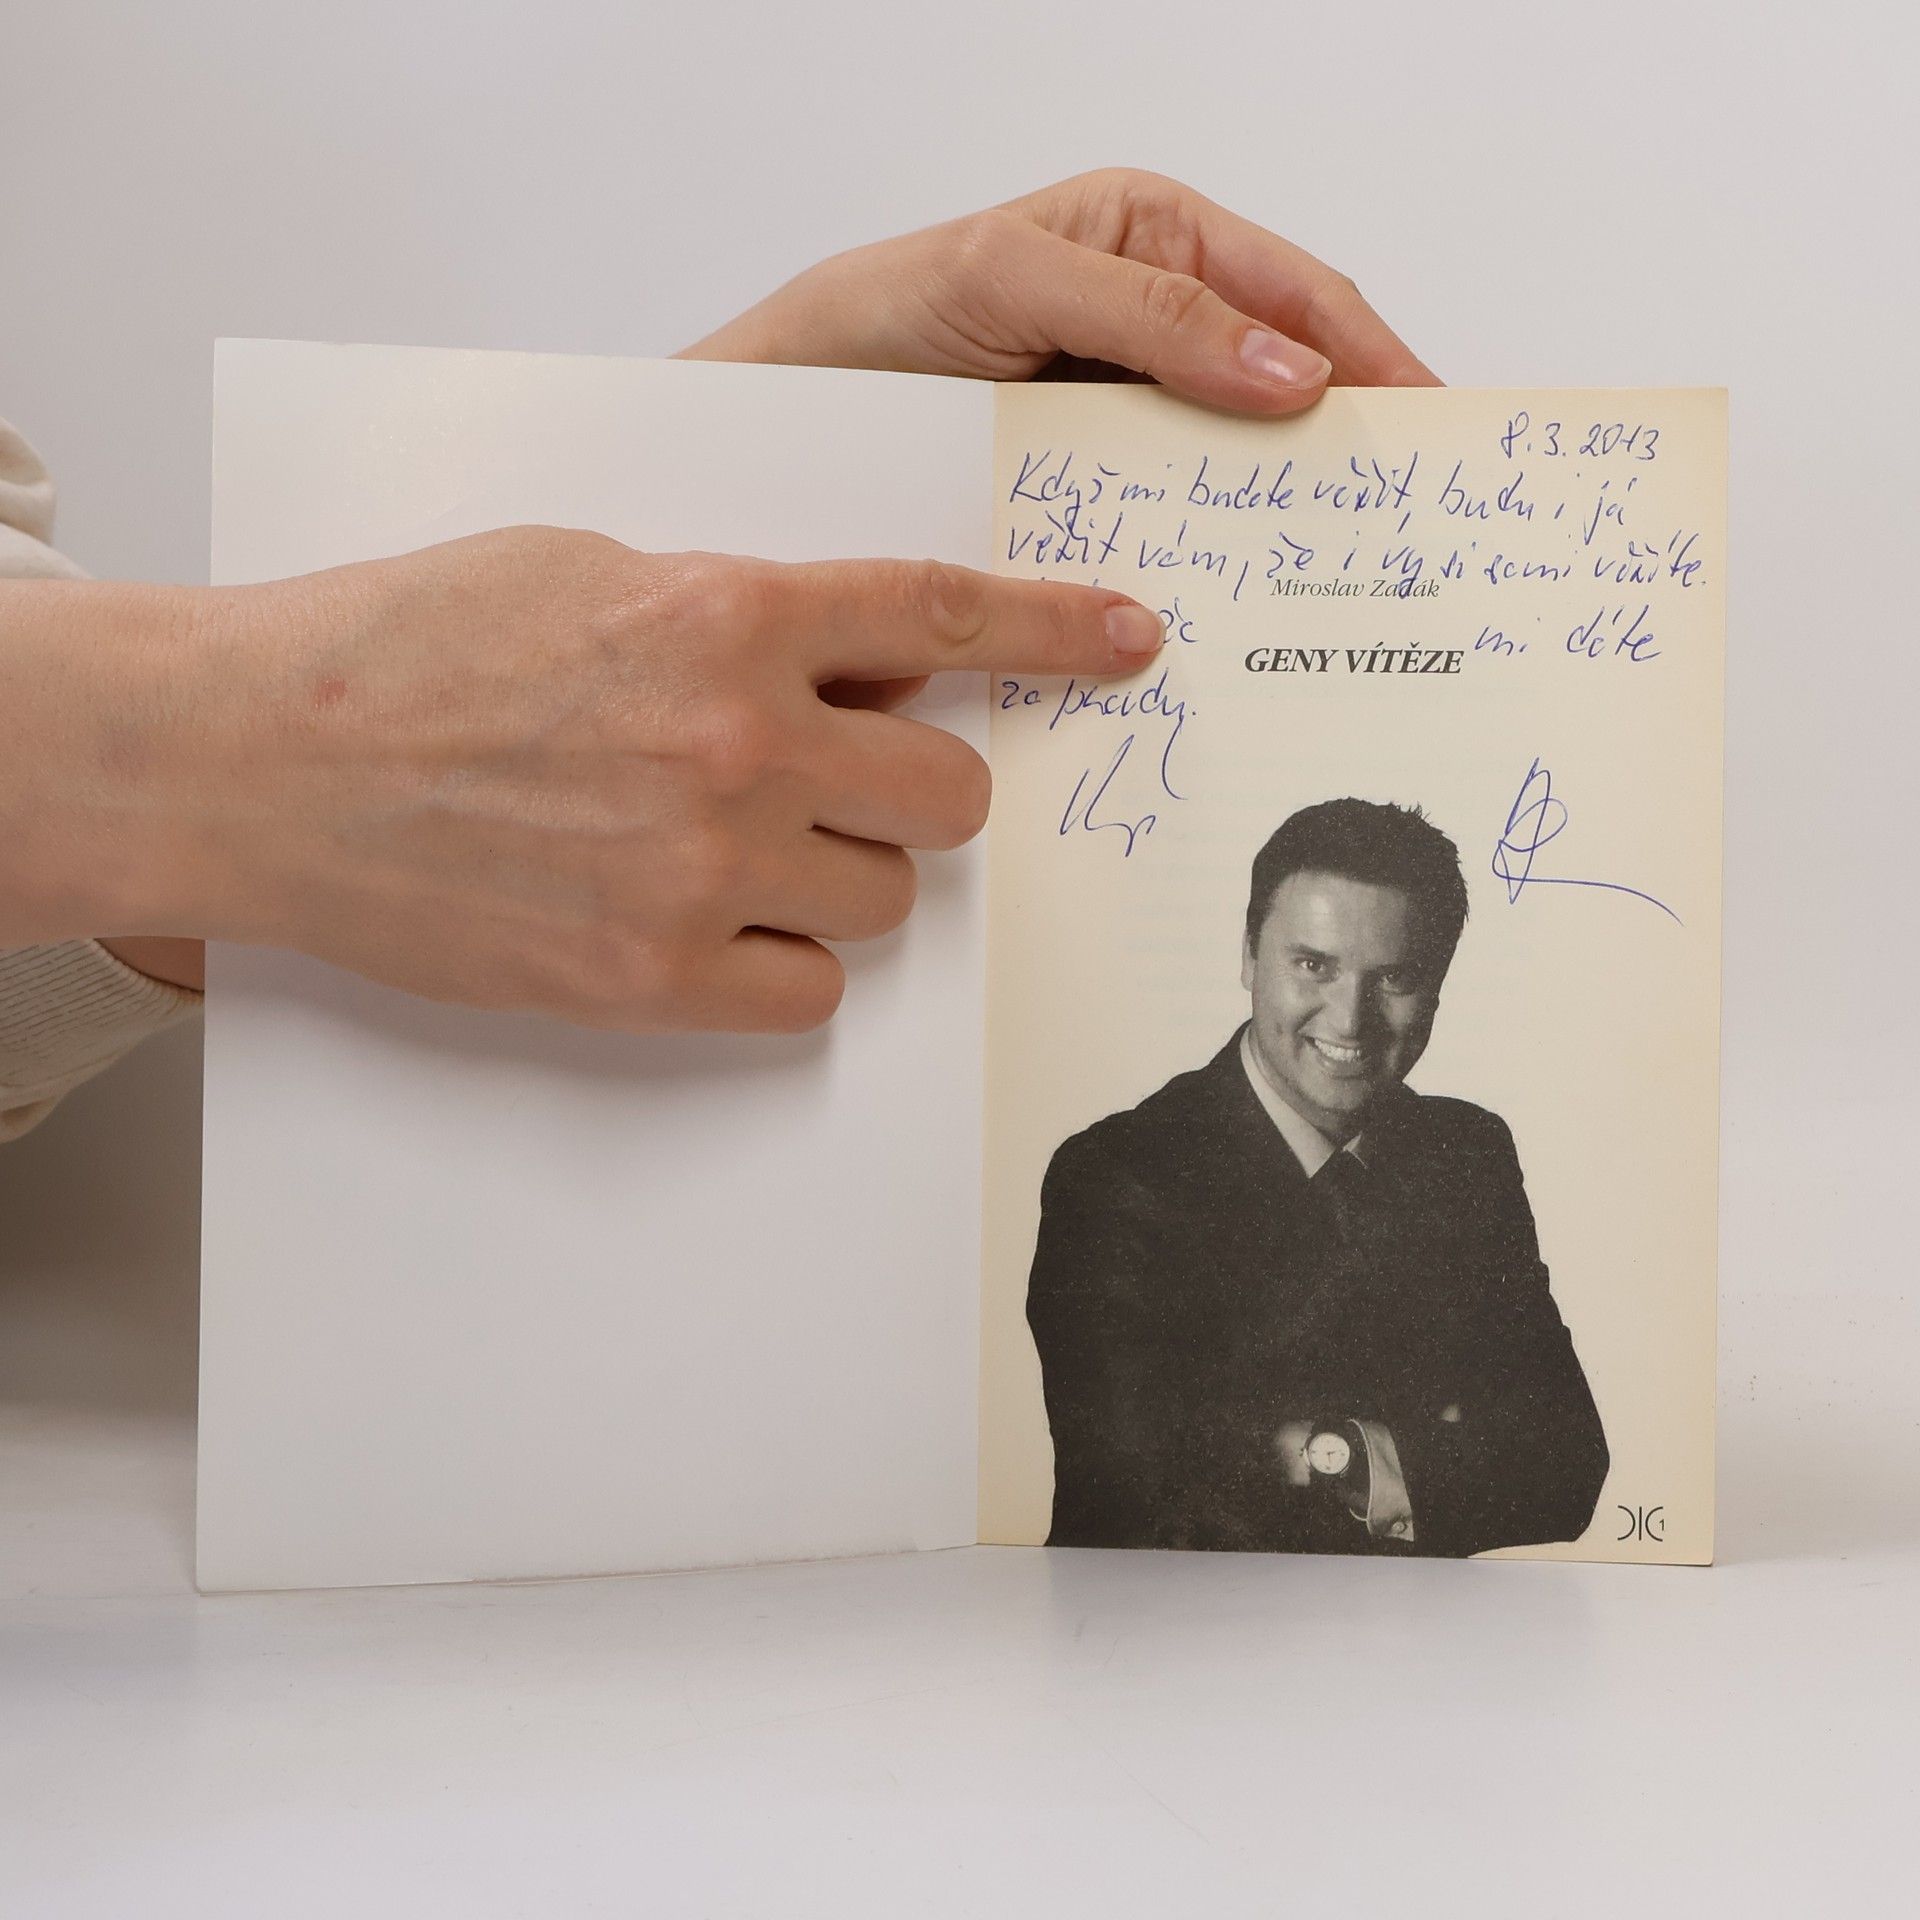 8.3.2013
Když mi budete věřit, budu i já
věřit vám, že i vy si sami věříte.
Miroslav Zadák
mi dáte
GENY VÍTĚZE
za pravdu.